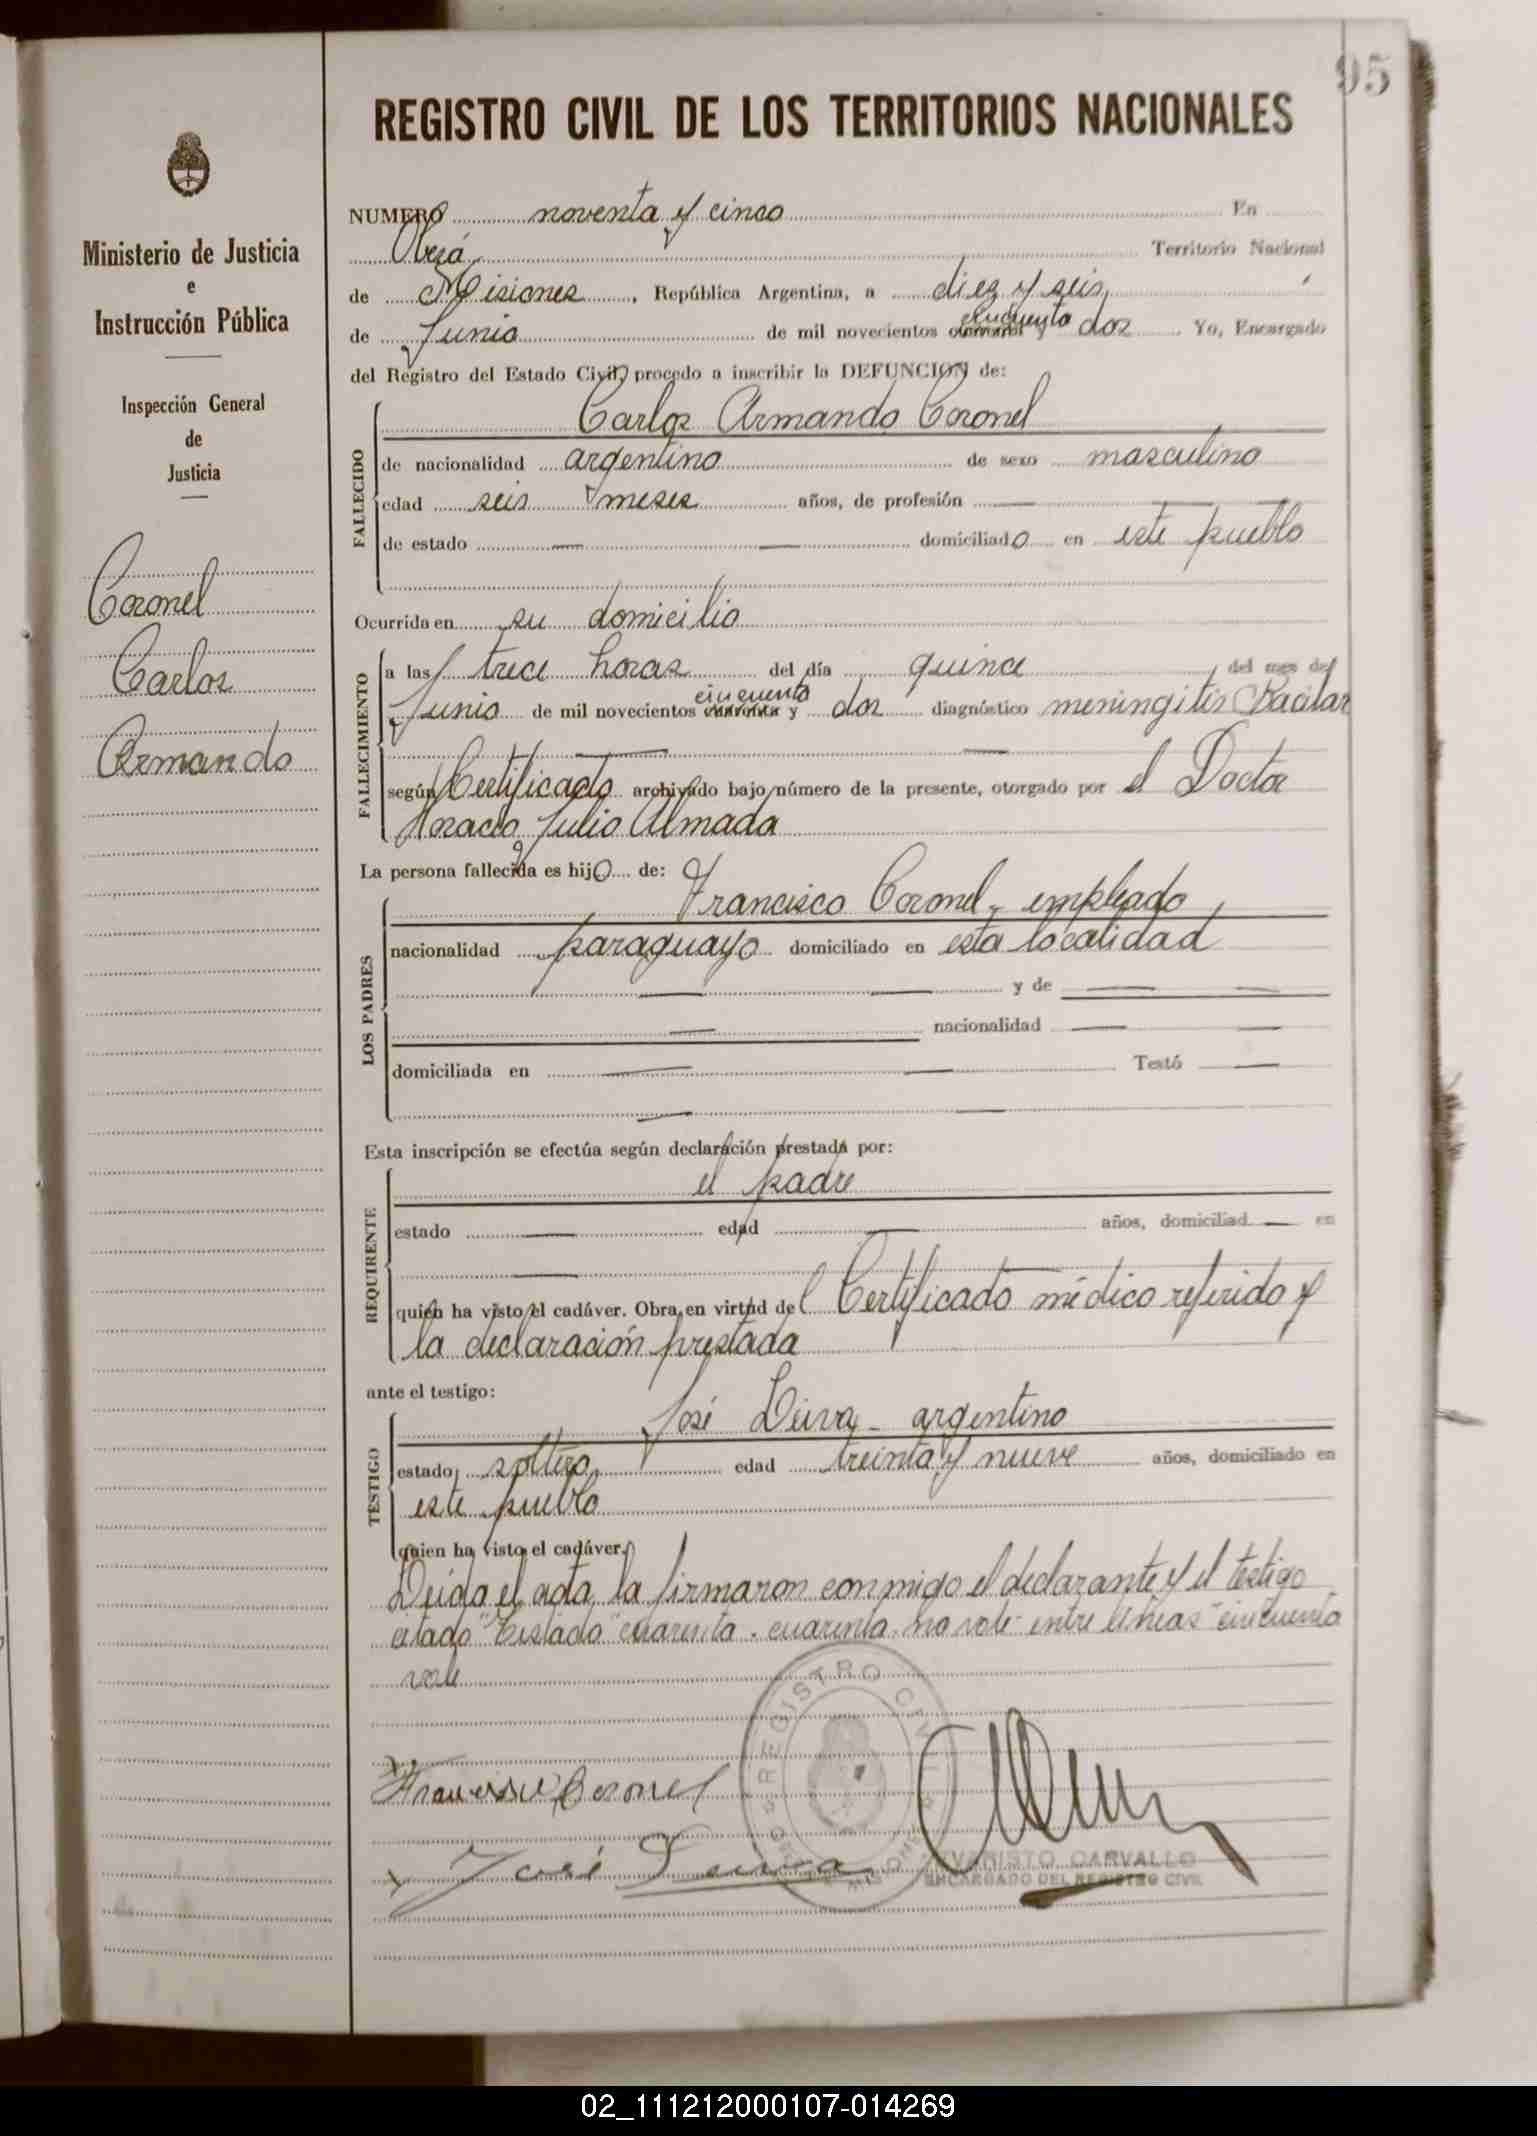 95
REGISTRO CIVIL DE LOS TERRITORIOS NACIONALES
Ministerio de Justicia
e
Instrucción Pública
Inspección General
de
Justicia
Coronel
Carlos
Armando
NUMERO noventa y cinco En
Oberá Territorio Nacional
de Misiones, República Argentina, a diez y seis
de Junio de mil novecientos cuarenta cincuenta y dos Yo, Encargado
del Registro del Estado Civil, procedo a inscribir la DEFUNCION de:
FALLECIDO
Carlos Armando Coronel
de nacionalidad argentino de sexo masculino
edad seis meses años, de profesión —
de estado — — domiciliado en este pueblo
Ocurrida en su domicilio
FALLECIMIENTO
a las trece horas del día quince, del mes de
Junio de mil novecientos cuarenta cincuenta y dos diagnóstico meningitis Bacilar
según Certificado archivado bajo número de la presente, otorgado por el Doctor
Horacio Julio Almada
La persona fallecida es hijo de:
LOS PADRES
Francisco Coronel - empleado
nacionalidad paraguayo domiciliado en esta localidad
— — y de — —
— nacionalidad — —
domiciliada en — — Testó —
— —
Esta inscripción se efectúa según declaración prestada por:
REQUIRENTE
el padre
estado — edad — años, domiciliad — en
—
quién ha visto el cadáver. Obra en virtud del Certificado médico referido y
la declaración prestada
ante el testigo:
TESTIGO
José Leiva - argentino
estado soltero edad treinta y nueve años, domiciliado en
este pueblo
quien ha visto el cadáver.
Leída el acta, la firmaron conmigo el declarante y el testigo
citado "Testado" cuarenta - cuarenta no vale - entre líneas "cincuenta
vale
Francisco Coronel
José Leiva
REGISTRO CIVIL
OBERA MISIONES
EVARISTO CARVALLO
ENCARGADO DEL REGISTRO CIVIL
02_111212000107-014269